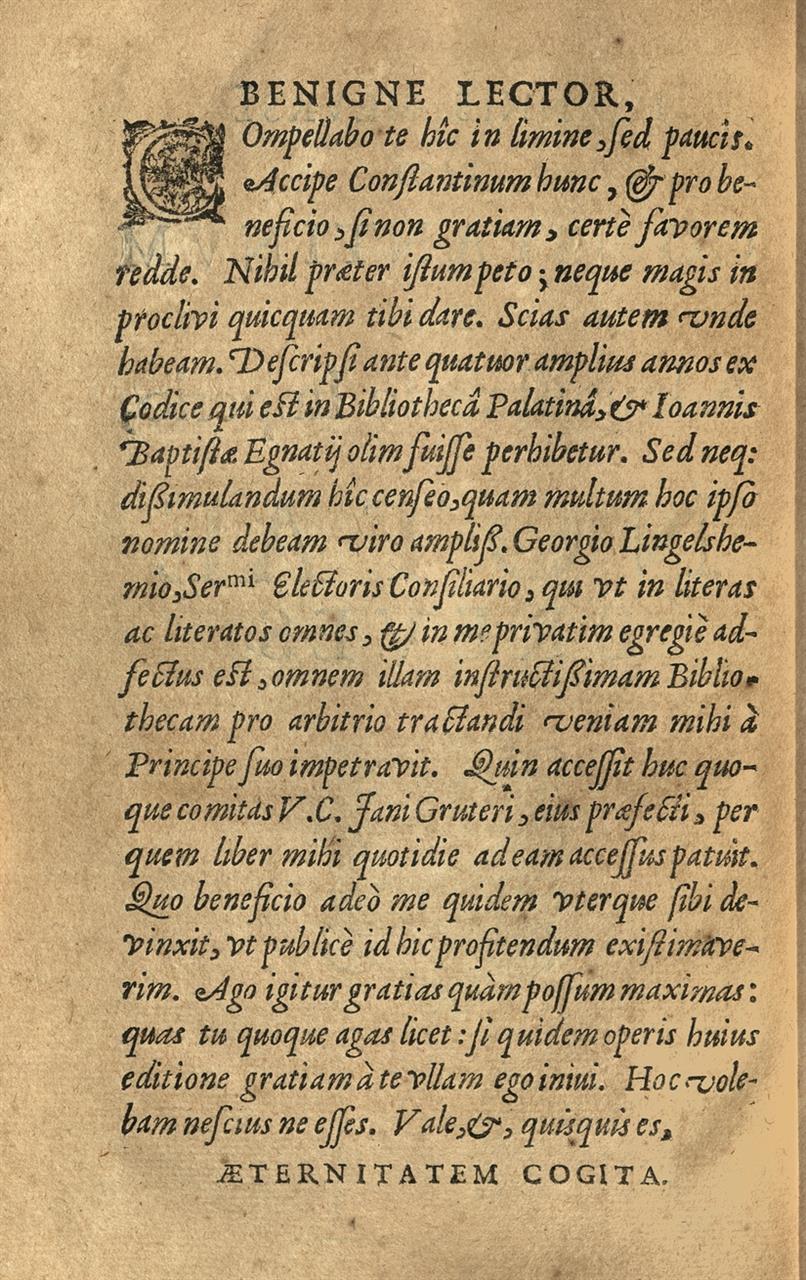 BENIGNE LECTOR,
COmpellabo te hîc in limine, sed paucis.
Accipe Constantinum hunc, & pro be-
neficio, si non gratiam, certè favorem
redde. Nihil præter istum peto; neque magis in
proclivi quicquam tibi dare. Scias autem vnde
habeam. Descripsi ante quatuor amplius annos ex
Codice qui est in Bibliothecâ Palatinâ, & Ioannis
Baptistæ Egnatij olim fuisse perhibetur. Sed neq;
dißimulandum hîc censeo, quam multum hoc ipso
nomine debeam viro ampliß. Georgio Lingelshe-
mio, Serᵐⁱ Electoris Consiliario, qui vt in literas
ac literatos omnes, & in me privatim egregiè ad-
fectus est, omnem illam instructißimam Biblio-
thecam pro arbitrio tractandi veniam mihi à
Principe suo impetravit. Quin accessit huc quo-
que comitas V.C. Jani Gruteri, eius præfecti, per
quem liber mihi quotidie ad eam accessus patuit.
Quo beneficio adeò me quidem vterque sibi de-
vinxit, vt publicè id hic profitendum existimave-
rim. Ago igitur gratias quàm possum maximas:
quas tu quoque agas licet: si quidem operis huius
editione gratiam à te vllam ego inivi. Hoc vole-
bam nescius ne esses. Vale, &, quisquis es,
ÆTERNITATEM COGITA.